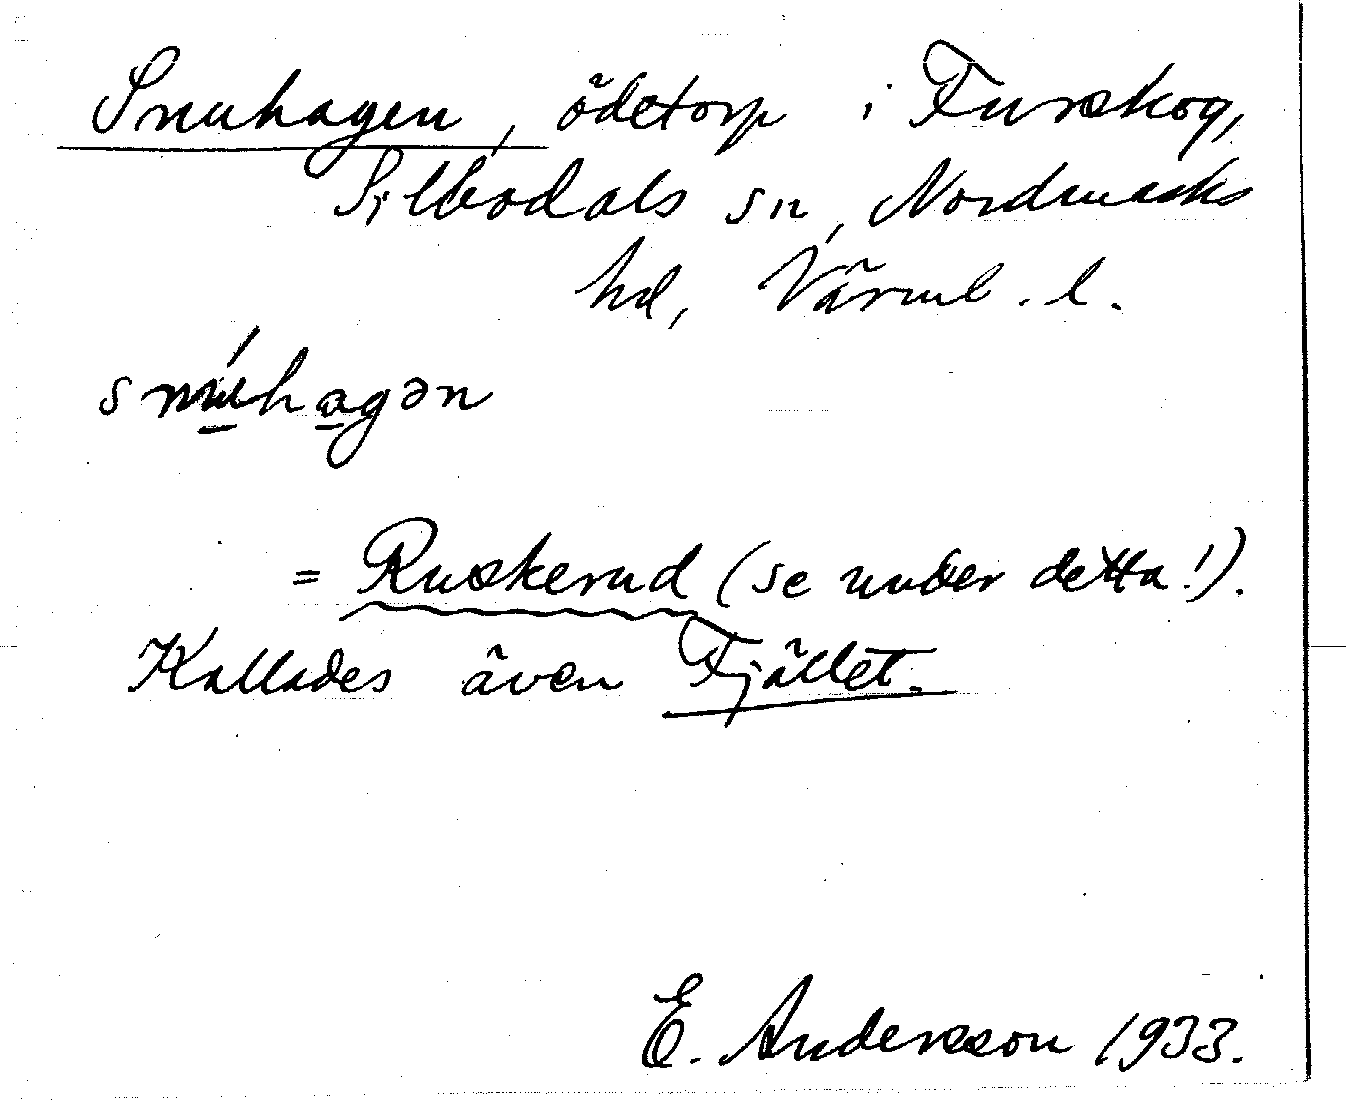 Snuhagen, ödetorp i Furskog,
Silbodals sn, Nordmarks
hd, Värml. l.
snúhagən
= Ruskerud (se under detta!).
Kallades även Fjället.
E. Andersson 1933.